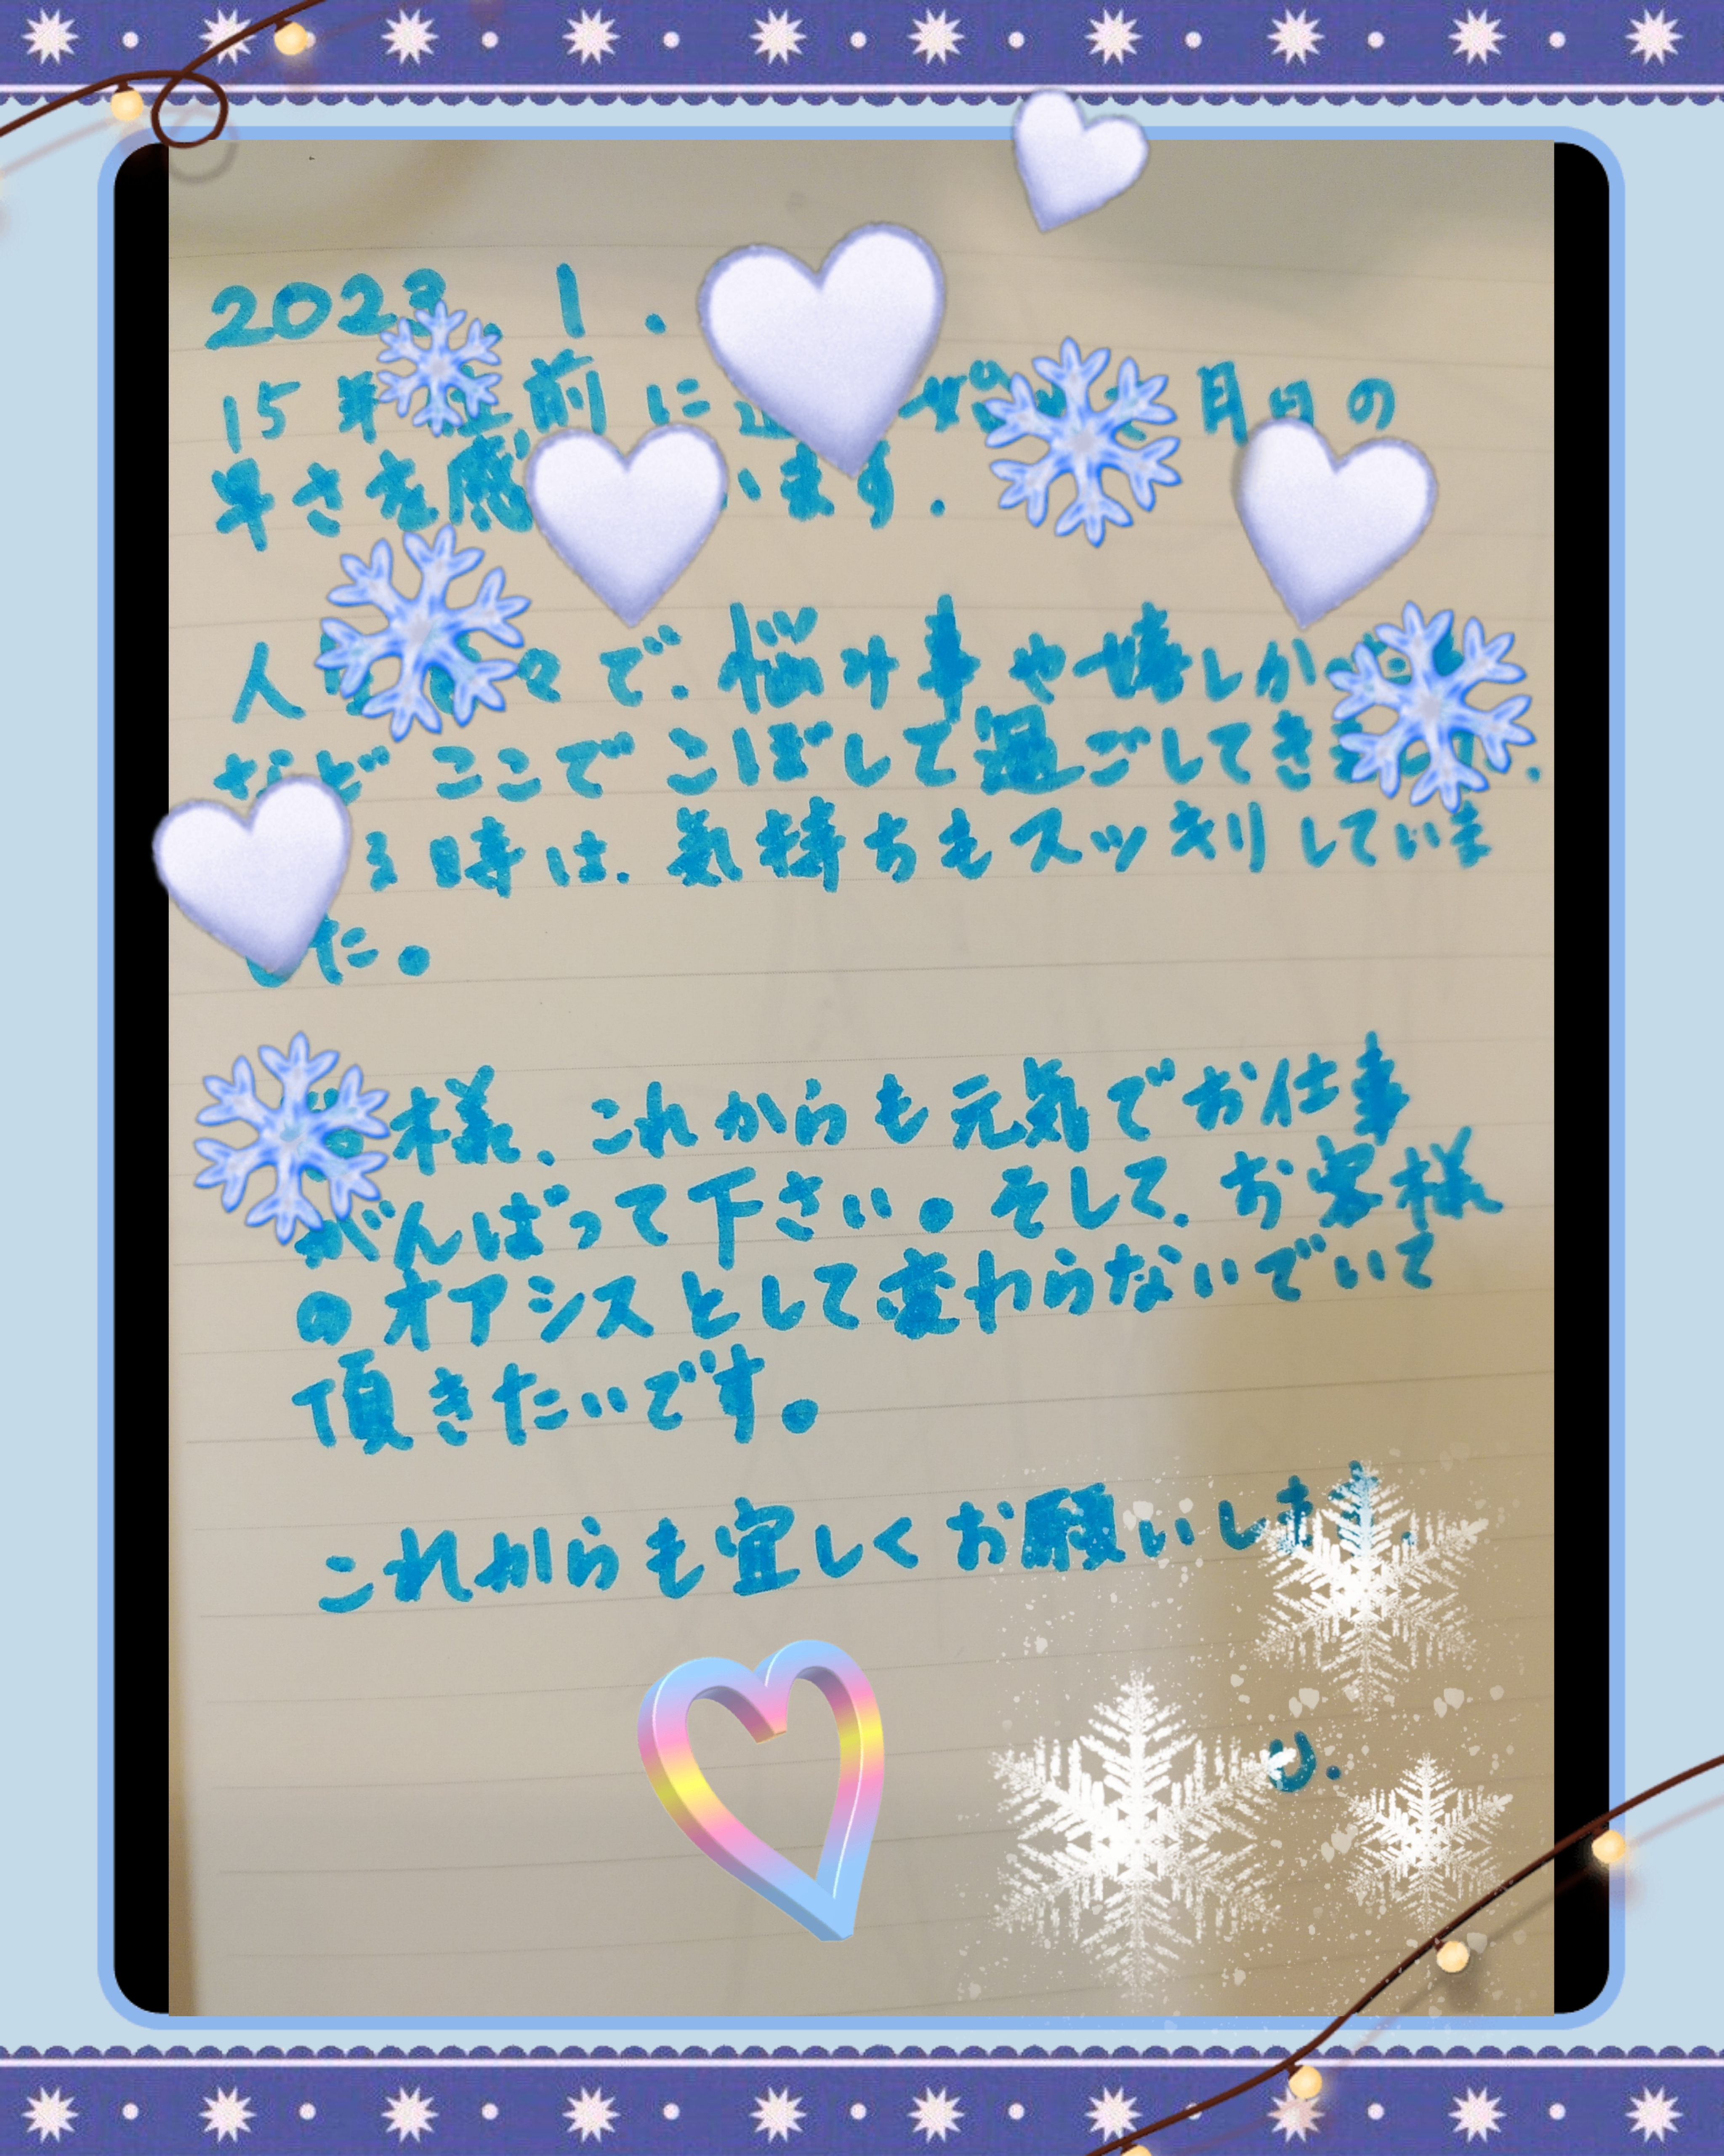 2023. 1.
15年 前に 月日の
早さを感 います.
人 々で、悩み事や嬉しか
などここでこぼして過ごしてき
る時は、気持ちもスッキリしていま
した。
様、これからも元気でお仕事
がんばって下さい。そして、お客様
のオアシスとして変わらないでいて
頂きたいです。
これからも宜しくお願いしま
U.